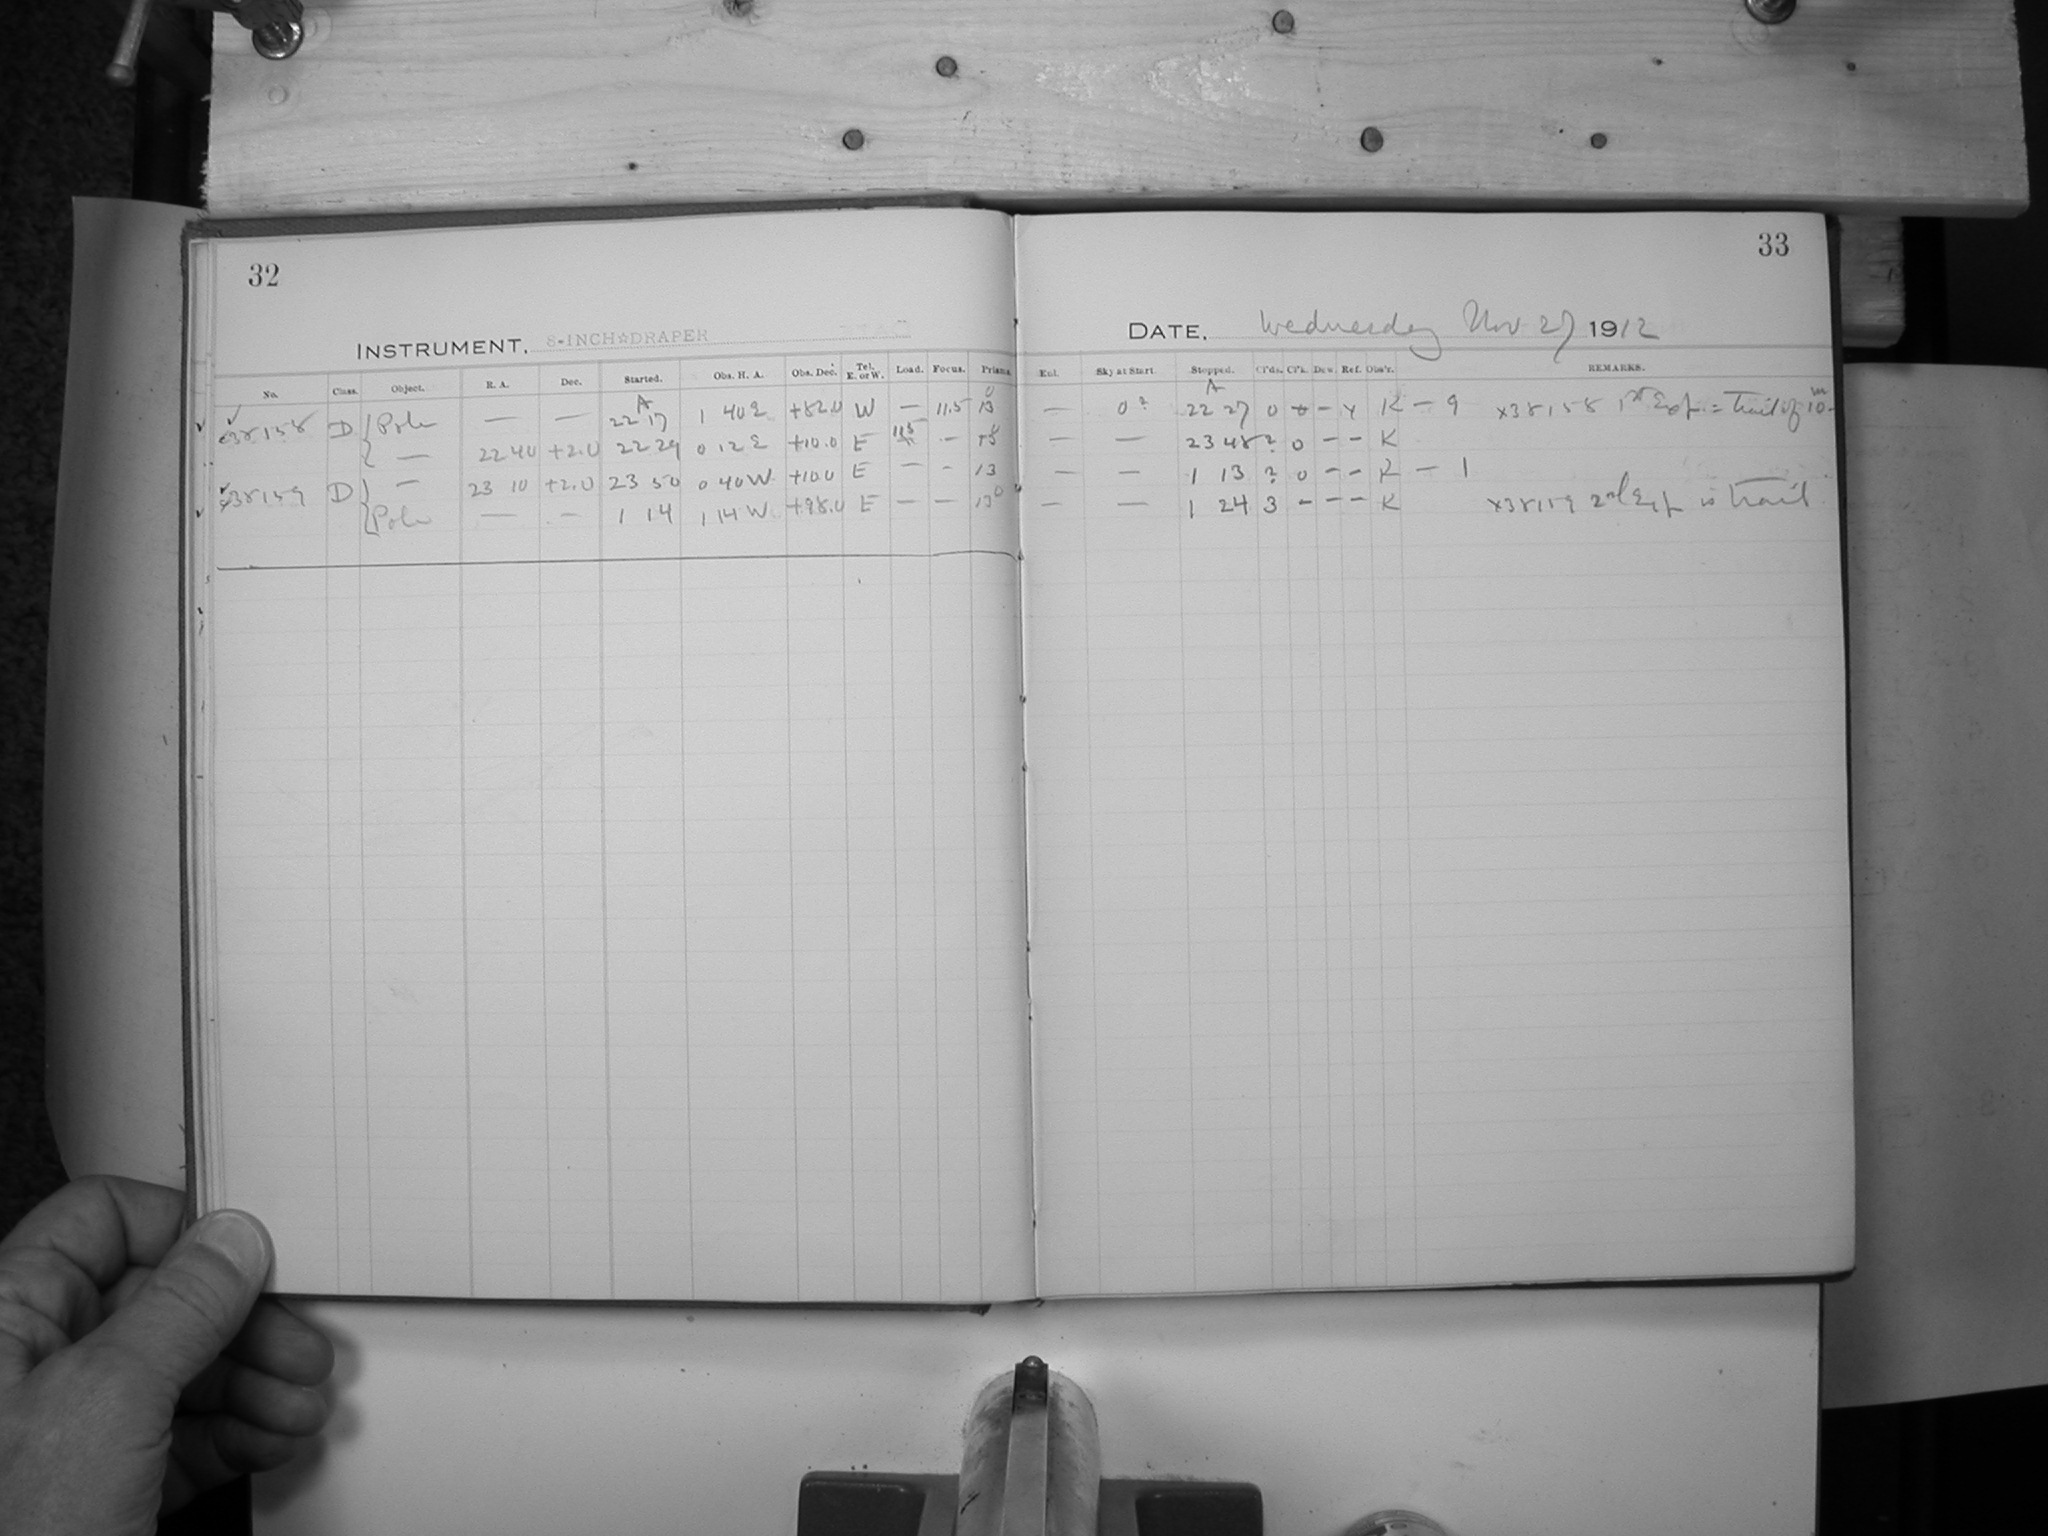 32
33
INSTRUMENT, 8-INCH☆DRAPER
DATE, Wednesday Nov 27 1912
No. Class. Object. R. A. Dec. Started. Obs. H. A. Obs. Dec. Tel. E. or W. Load. Focus. Prisms. Ext. Sky at Start. Stopped. Cl'ds. Cl'k. Dew. Ref. Obs'r. REMARKS.
38158 D Pole — — A 22 17 1 40 E +82.0 W — 11.5 13 — 0? A 22 27 0 — y K — 9 x38158 1st Exp. = Trail of 10m
— 22 40 +2.0 22 29 0 12 E +10.0 E — — — 23 48 ? 0 – – K
38159 D — 23 10 +2.0 23 50 0 40 W +10.0 E — – 13 — — 1 13 ? 0 – – K — 1
Pole — — 1 14 1 14 W +98.0 E — — 13 — — 1 24 3 – – – K x38159 2nd Exp is trail